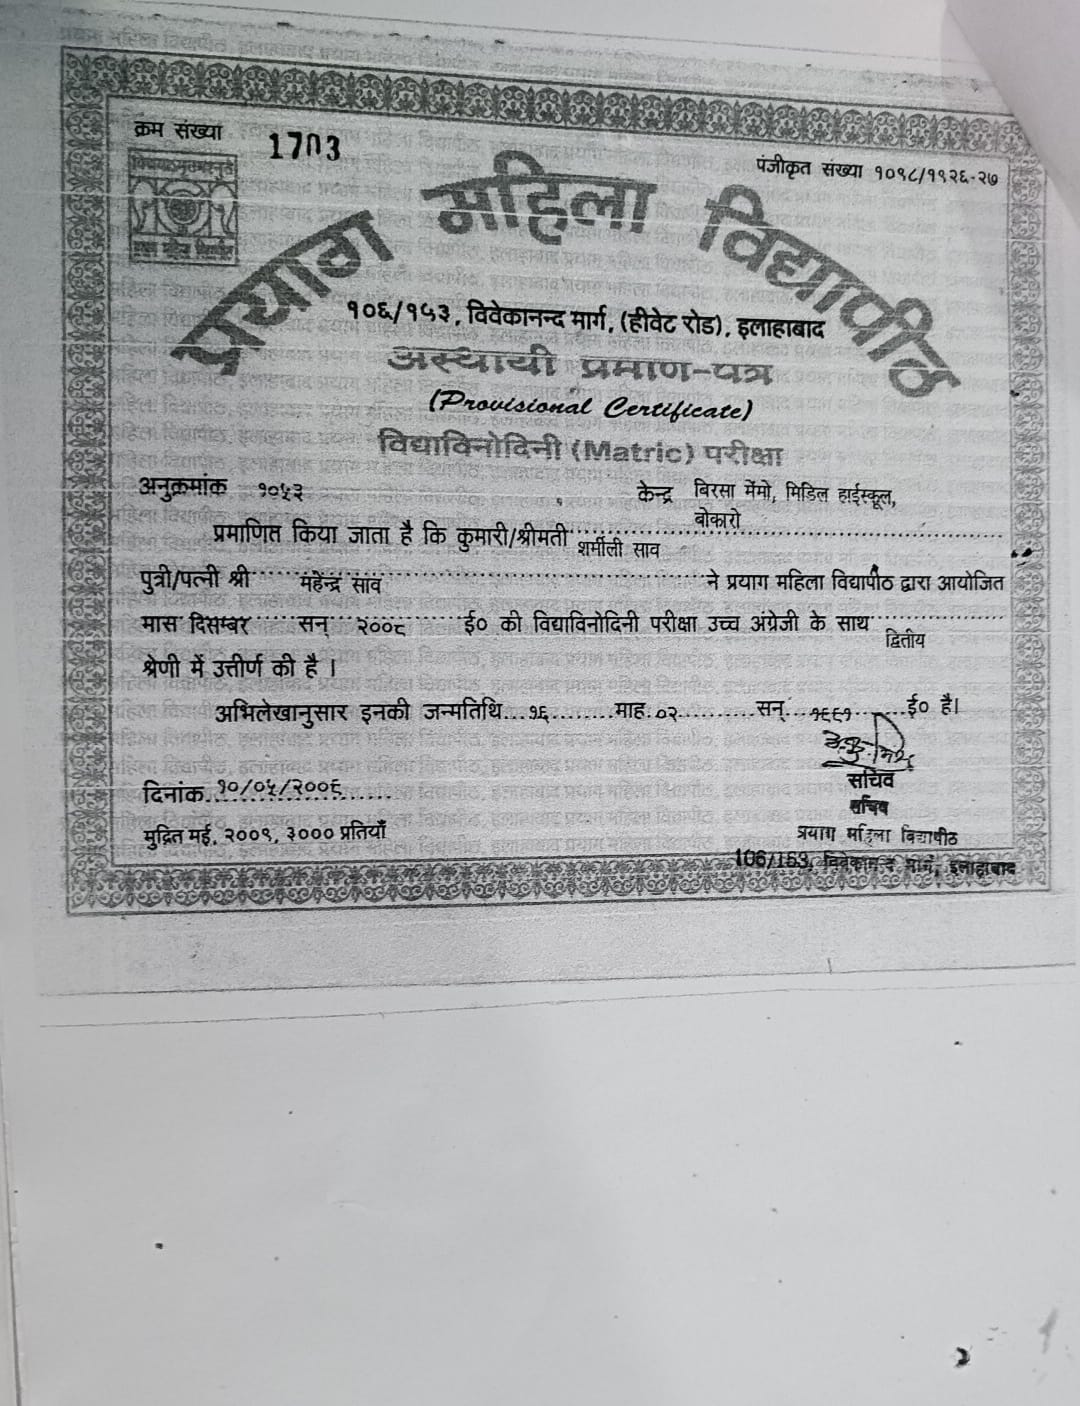 क्रम संख्या 1703
पंजीकृत संख्या १०९८/१९२६-२७
प्रयाग महिला विद्यापीठ
१०६/१५३, विवेकानन्द मार्ग, (हीवेट रोड), इलाहाबाद
अस्थायी प्रमाण-पत्र
(Provisional Certificate)
विद्याविनोदिनी (Matric) परीक्षा
अनुक्रमांक १०५३ केन्द्र बिरसा मेंमो, मिडिल हाईस्कूल,
बोकारो
प्रमाणित किया जाता है कि कुमारी/श्रीमती शर्मीली साव
पुत्री/पत्नी श्री महेन्द्र साव ने प्रयाग महिला विद्यापीठ द्वारा आयोजित
मास दिसम्बर सन् २००८ ई० की विद्याविनोदिनी परीक्षा उच्च अंग्रेजी के साथ द्वितीय
श्रेणी में उत्तीर्ण की है।
अभिलेखानुसार इनकी जन्मतिथि १६ माह ०२ सन् १९९१ ई० है।
दिनांक १०/०५/२००९
सचिव
सचिव
मुद्रित मई, २००९, ३००० प्रतियाँ
प्रयाग महिला विद्यापीठ
106/153, विवेकानन्द मार्ग, इलाहाबाद